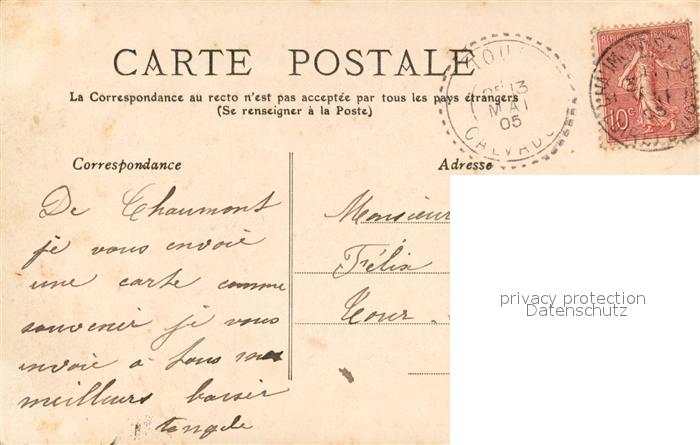 CARTE POSTALE
La Correspondance au recto n'est pas acceptée par tous les pays étrangers
(Se renseigner à la Poste)
RÉPUBLIQUE FRANÇAISE
10c
13
MAI
05
CALVADOS
Correspondance
Adresse
De Chaumont
je vous envoie
une carte comme
souvenir je vous
envoie a tous mes
meilleurs baiser
Monsieur
Tour
privacy protection
Datenschutz